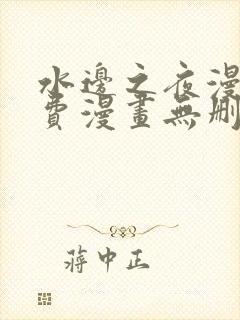 水邊之夜漫
費漫畫無刪
蔣中正